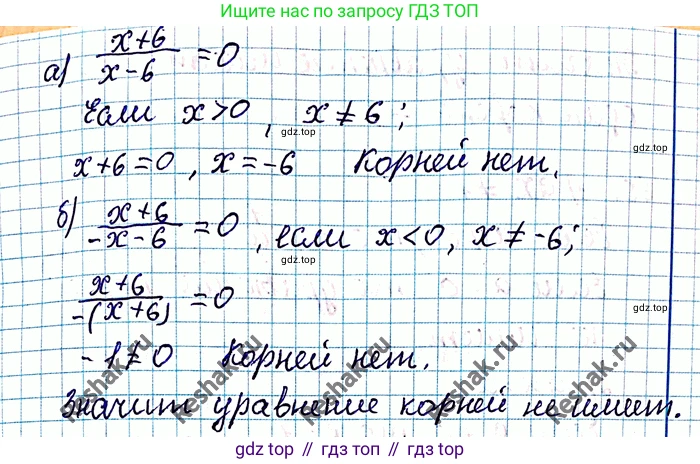 Ищите нас по запросу ГДЗ ТОП
а) (x+6)/(x-6) = 0
Если x>0, x≠6;
gdz.top
x+6=0, x=-6 Корней нет.
б) (x+6)/(-x-6) = 0, если x<0, x≠-6;
gdz.top
(x+6)/(-(x+6)) = 0
-1≠0 Корней нет.
Значит уравнение корней не имеет.
reshak.ru
reshak.ru
reshak.ru
reshak.ru
gdz.top
gdz top // гдз топ // gdz top